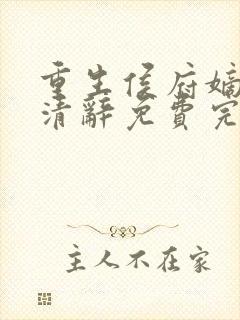 重生侯府嫡
清辭免費完
主人不在家